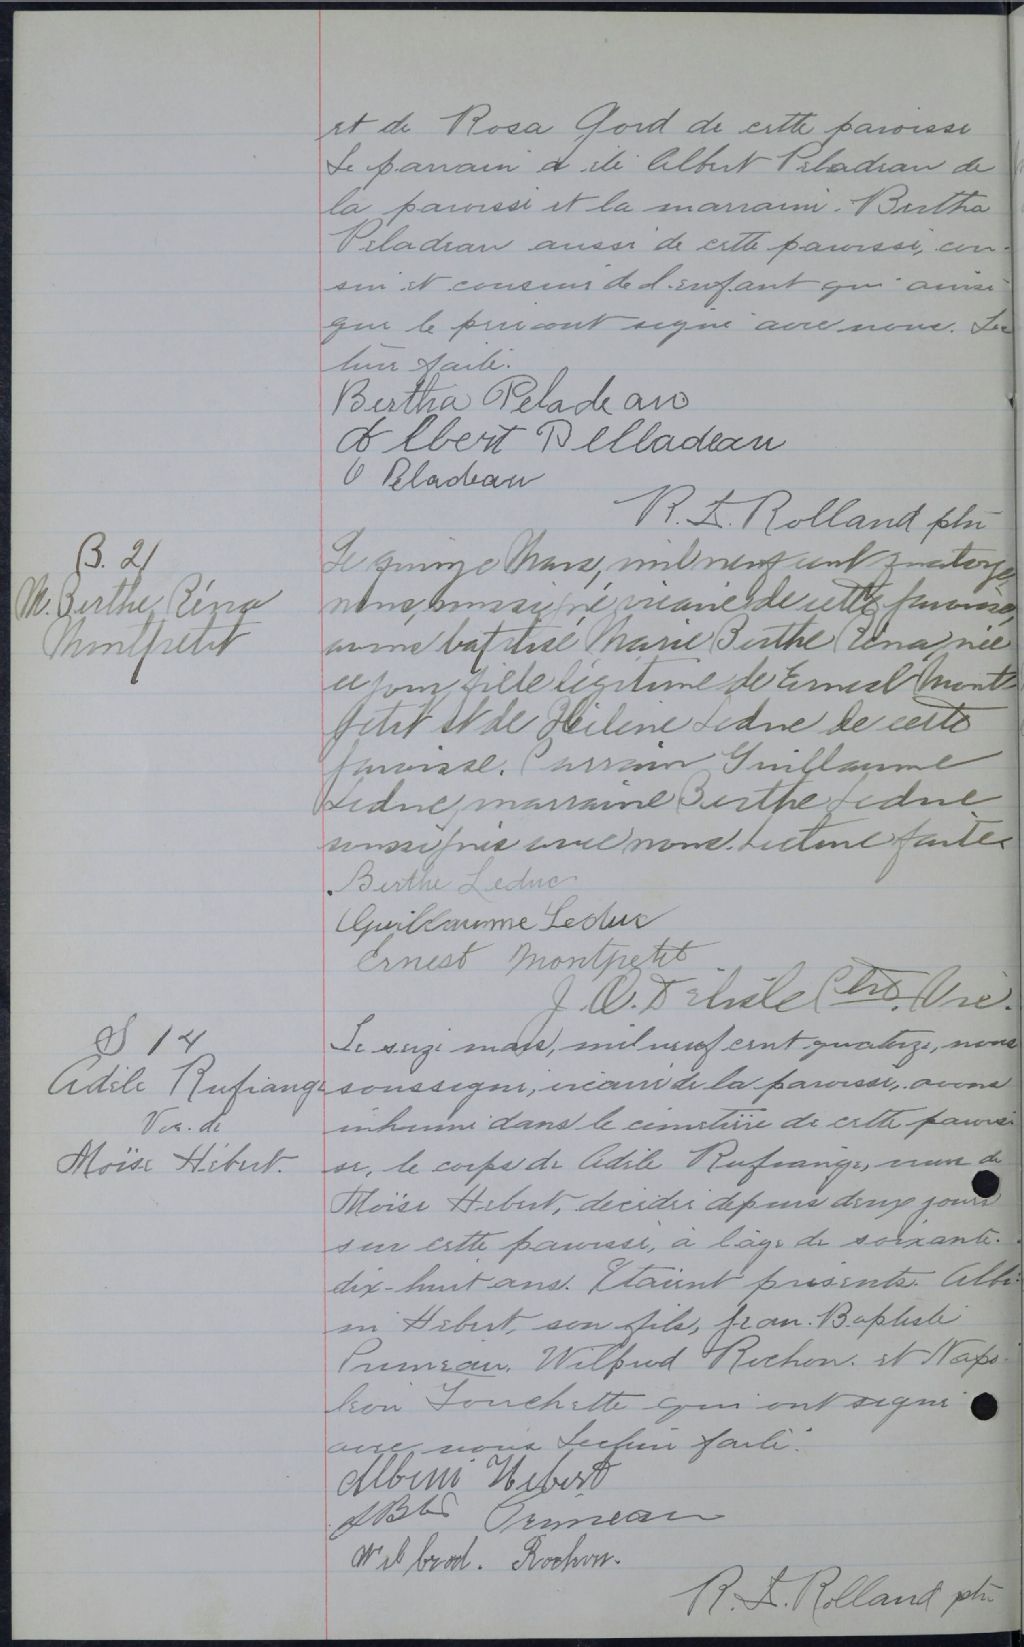 et de Rosa Gord de cette paroisse
Le parrain a été Albert Peladeau de
la paroisse et la marraine. Bertha
Peladeau aussi de cette paroisse, cou-
sin et cousine de l'enfant qui ainsi
que le père ont signé avec nous. Lec
ture faite.
Bertha Peladeau
Albert Pelladeau
O Peladeau
R. L. Rolland ptre
B. 21
M. Berthe Réna
Montpetit
Le quinze Mars, mil neuf cent quatorze,
nous, soussigné vicaire de cette paroisse,
avons baptisé Marie Berthe Réna, née
ce jour, fille légitime de Ernest Mont-
petit et de Hélène Leduc de cette
paroisse. Parrain Guillaume
Leduc, marraine Berthe Leduc
soussignés avec nous. Lecture faite.
Berthe Leduc
Guillaume Leduc
Ernest Montpetit
J. O. Delisle Ptre, Vic.
S 14
Adèle Rufiange
Vve. de
Moïse Hébert.
Le seize mars, mil neuf cent quatorze, nous
soussigné, vicaire de la paroisse, avons
inhumé dans le cimetière de cette parois
se, le corps de Adèle Rufiange, veuve de
Moïse Hébert, décédée depuis deux jours
sur cette paroisse, à l'âge de soixante-
dix-huit ans. Etaient présents. Albé-
ni Hébert, son fils, Jean-Baptiste
Primeau, Wilfrid Rochon. et Napo-
léon Touchette qui ont signé
avec nous Lecture faite.
Albeni Hebert
J Bte Primeau
Wilbrod. Rochon.
R. L. Rolland ptre